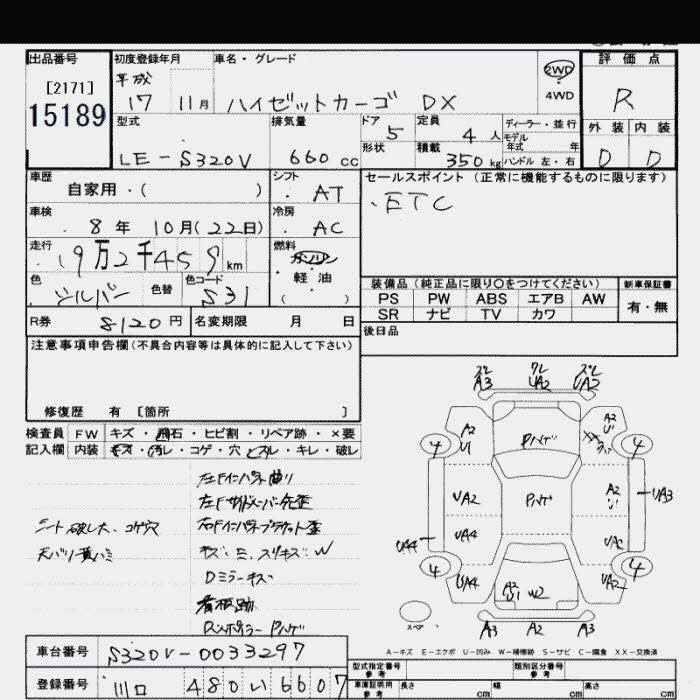 出品番号
[2171]
15189
初度登録年月
平成
17 11月
車名・グレード
ハイゼットカーゴ DX
2WD
4WD
評価点
R
外装 内装
D D
型式
LE-S320V
排気量
660 cc
ドア
5
形状
定員
4 人
積載
350 kg
ディーラー・並行
モデル
年式 年
ハンドル 左・右
車歴
自家用・( )
シフト
AT
車検
8 年 10月(22日)
冷房
AC
走行
19万2千459 km
燃料
ガソリン
軽油
( )
色
シルバー
色替
色コード
S31
R券
8120 円
名変期限 月 日
セールスポイント(正常に機能するものに限ります)
・ETC
装備品(純正品に限り〇をつけてください)
新車保証書
PS PW ABS エアB AW
SR ナビ TV カワ
有・無
後日品
注意事項申告欄(不具合内容等は具体的に記入して下さい)
修復歴 有 [箇所 ]
検査員
記入欄
FW キズ・飛石・ヒビ割・リペア跡・×要
内装 キズ・汚レ・コゲ・穴・スレ・キレ・破レ
左Fインパネ曲り
左Fサイドメンバー先歪
右Fインパネブラケット歪
キズ・ミ、スリキズ W
Dミラーキズ
看板跡
シート破レ大、コゲ穴
天バリ黄バミ
スレ A3
ワレ UA2
スレ UA2
A2 U1
PハゲA2 U1
XX
4 4
UA2
Pハゲ
A2
UA3
UA4
UA4
UA2
4 4
UA4
A2 S1 W2
UA2
スペア
A3 A2 A3
A-キズ E-エクボ U-凹み W-補修跡 S-サビ C-腐食 XX-交換済
車台番号
S320V-0033297
登録番号
川口 480 い 6607
型式指定番号
参考
類別区分番号
参考
車庫証明用
参考
長さ cm
幅 cm
高さ cm